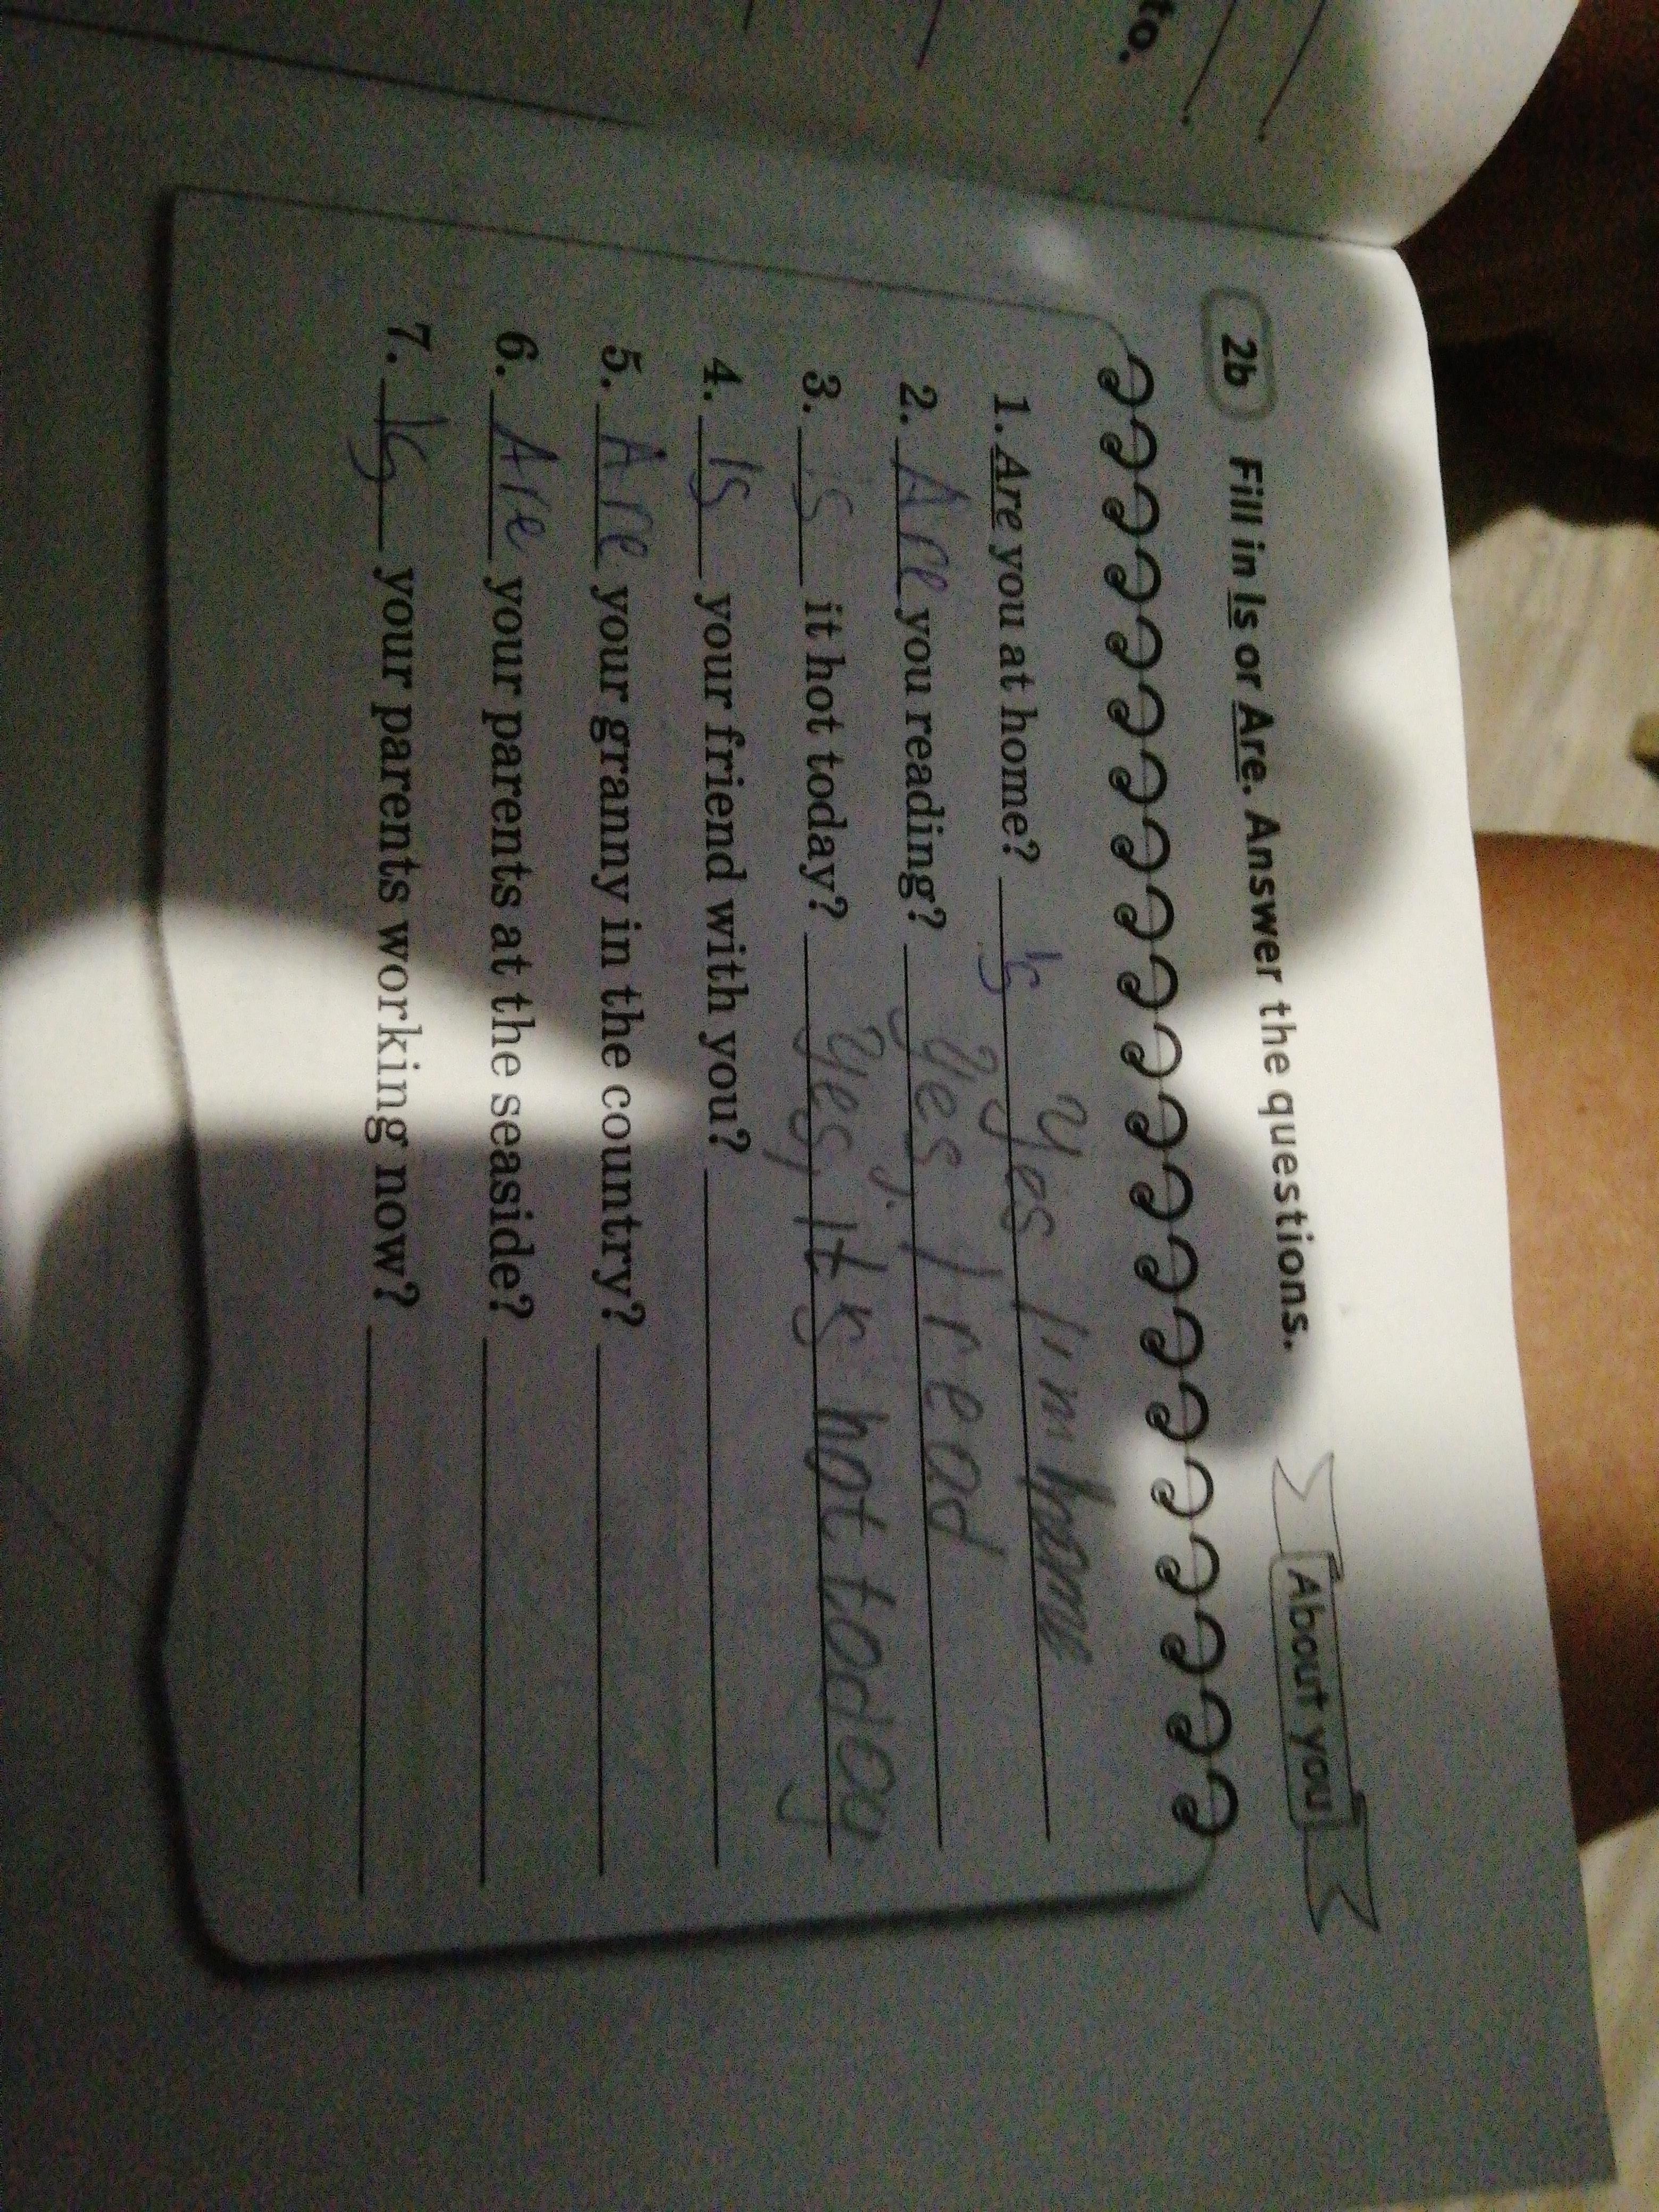 to.
2b Fill in Is or Are. Answer the questions.
About you
1. Are you at home? is Yes I'm home
2. Are you reading? Yes, I read
3. is it hot today? Yes, It is hot today
4. Is your friend with you?
5. Are your granny in the country?
6. Are your parents at the seaside?
7. Is your parents working now?